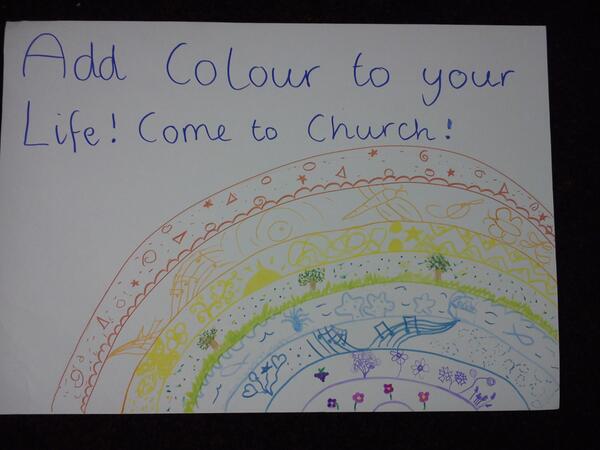 Add Colour to your
Life! Come to Church!